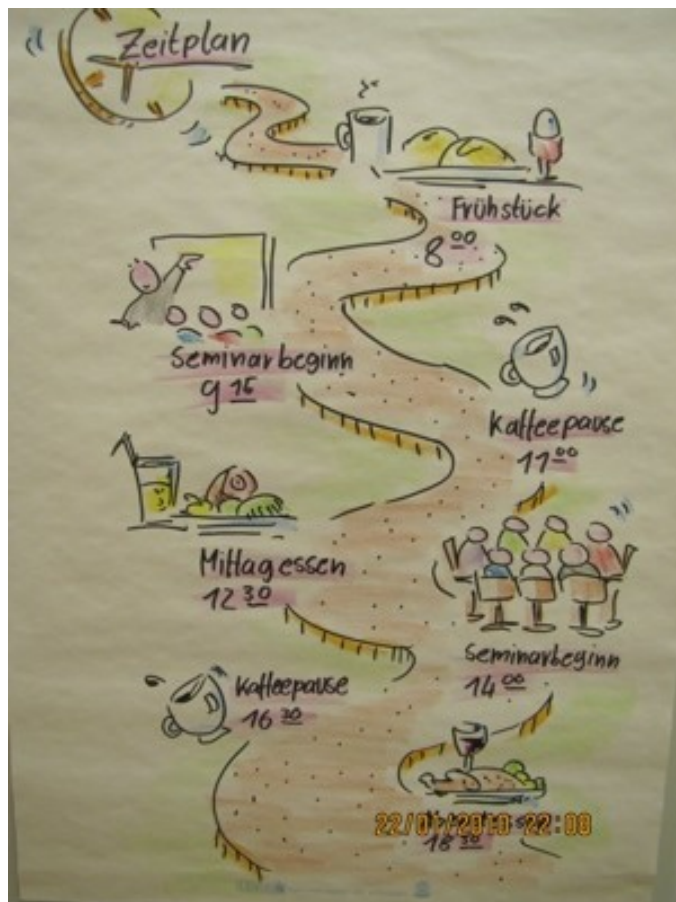 Zeitplan
Frühstück
8 00
Seminarbeginn
9 15
Kaffeepause
11 00
Mittagessen
12 30
Seminarbeginn
14 00
Kaffeepause
16 30
22/01/2010 22:08
18 30